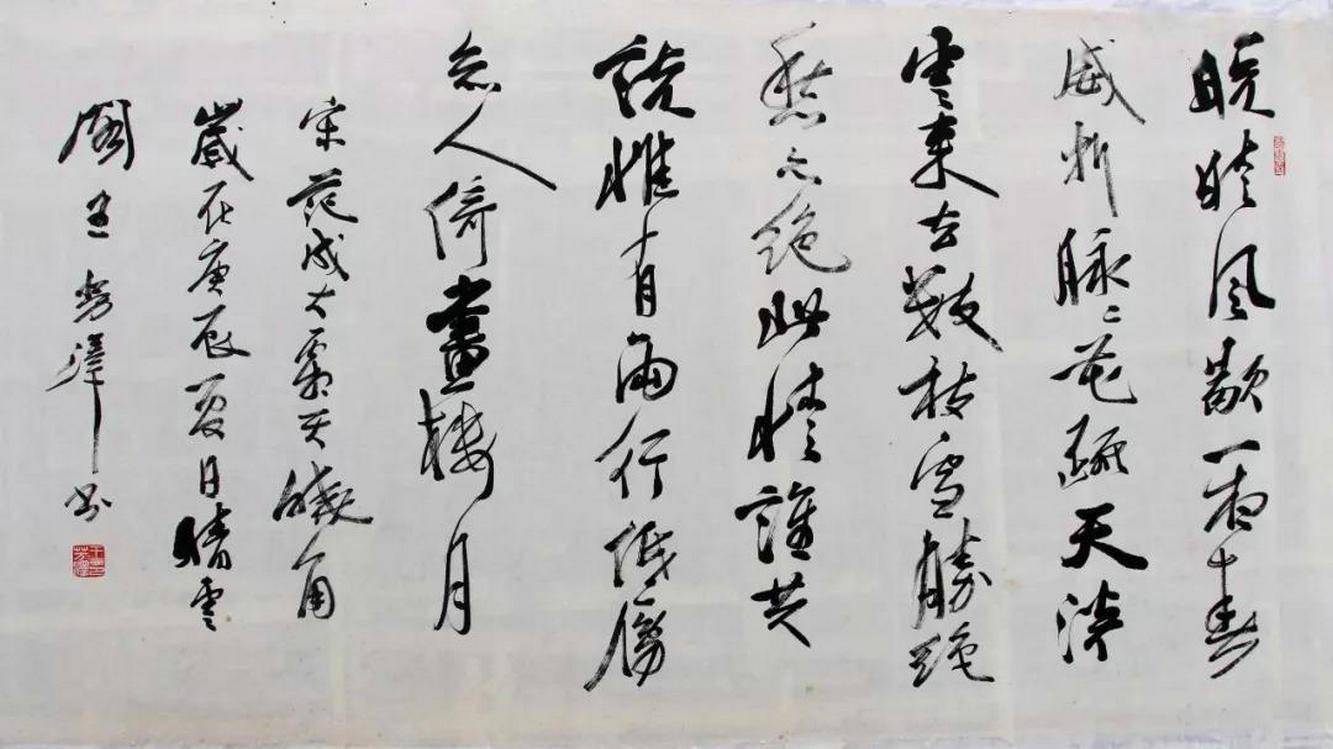 晚晴風歇一夜春
威折脉々花疏天淡
雲来去數枝雪勝絶
愁亦絶此情誰共
説惟有兩行低雁
知人倚畫樓月
宋范成大霜天曉角
歲在庚辰夏日晴雲
閣王芳澤书